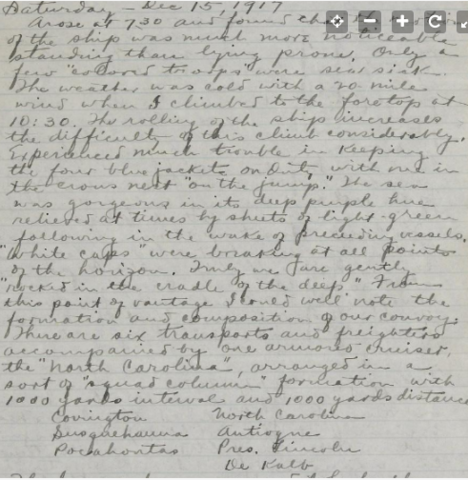 Saturday - Dec 15, 1917
Arose at 7.30 and found that the
of the ship was much more noticeable
standing than lying prone. Only a
few "colored troops" were sea sick.
The weather was cold with a 20 mile
wind when I climbed to the foretop at
10:30. The rolling of the ships increases
the difficulty of this climb considerably.
Experienced much trouble in keeping
the four blue jackets on duty with me in
the crows nest "on the jump." The sea
was gorgeous in its deep purple hue
relieved at times by sheets of light green
following in the wake of preceding vessels.
"White caps" were breaking at all points
of the horizon. Truly we are gently
"rocked in the cradle of the deep" From
this point of vantage I could well note the
formation and composition of our convoy.
There are six transports and freighters
accompanied by one armored cruiser
the "North Carolina", arranged in a
sort of "squad column" formation with
1000 yards interval and 1000 yards distance
Covington North Carolina
Susquehanna Antigone
Pocahontas Pres. Lincoln
De Kalb